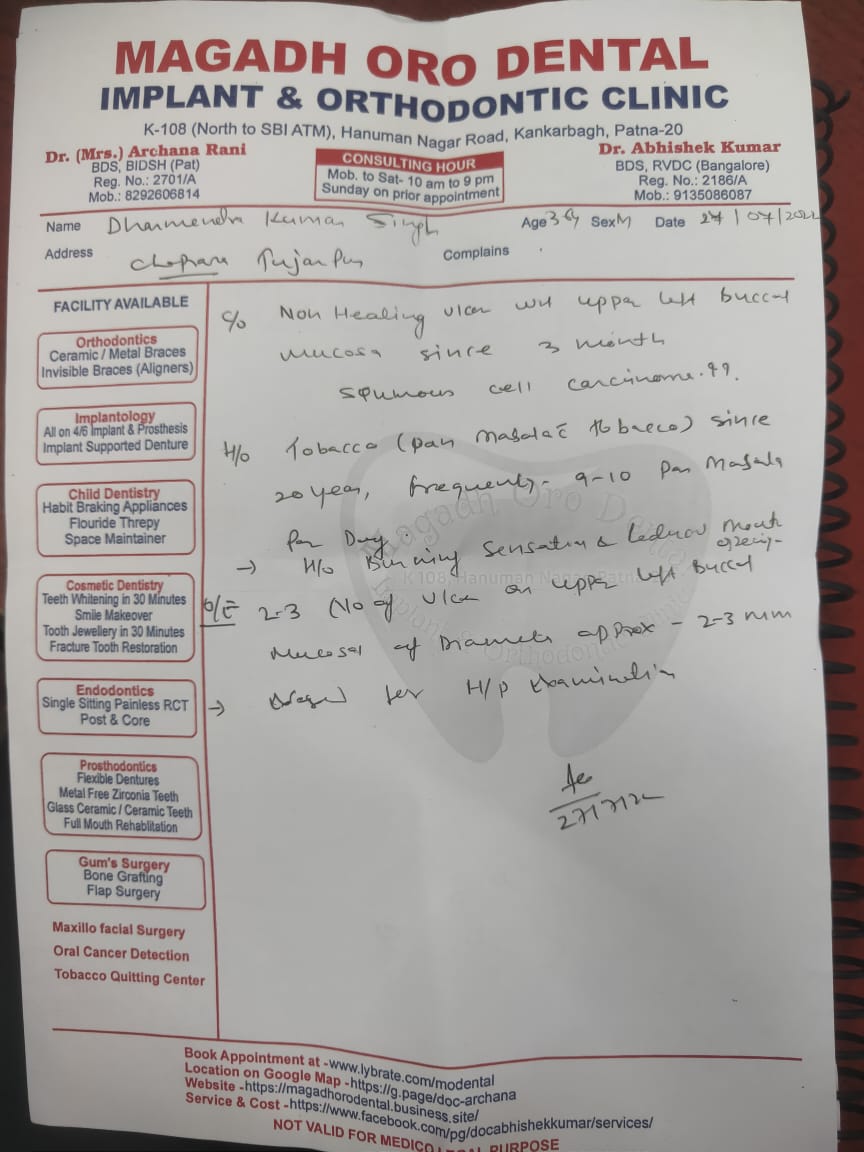 MAGADH ORO DENTAL
IMPLANT & ORTHODONTIC CLINIC
K-108 (North to SBI ATM), Hanuman Nagar Road, Kankarbagh, Patna-20
Dr. (Mrs.) Archana Rani
BDS, BIDSH (Pat)
Reg. No.: 2701/A
Mob.: 8292606814
CONSULTING HOUR
Mob. to Sat- 10 am to 9 pm
Sunday on prior appointment
Dr. Abhishek Kumar
BDS, RVDC (Bangalore)
Reg. No.: 2186/A
Mob.: 9135086087
Name Dharmendra Kumar Singh Age 36y Sex M Date 27/07/2022
Address Chapara Complains
FACILITY AVAILABLE
Orthodontics
Ceramic / Metal Braces
Invisible Braces (Aligners)
Implantology
All on 4/6 Implant & Prosthesis
Implant Supported Denture
Child Dentistry
Habit Braking Appliances
Flouride Threpy
Space Maintainer
Cosmetic Dentistry
Teeth Whitening in 30 Minutes
Smile Makeover
Tooth Jewellery in 30 Minutes
Fracture Tooth Restoration
Endodontics
Single Sitting Painless RCT
Post & Core
Prosthodontics
Flexible Dentures
Metal Free Zirconia Teeth
Glass Ceramic / Ceramic Teeth
Full Mouth Rehablitation
Gum's Surgery
Bone Grafting
Flap Surgery
Maxillo facial Surgery
Oral Cancer Detection
Tobacco Quitting Center
c/o Non Healing ulcer wrt upper left buccal
mucosa since 3 month
squmous cell carcinoma ??
H/o Tobacco (pan masala c̄ tobacco) since
20 year, frequently - 9-10 Pan Masala
Per Day.
→ H/o Burning Sensation & reduced mouth
opening-
O/E 2-3 No of ulcer on upper left Buccal
Mucosal of Diameter approx - 2-3 mm
→ for H/P Examination
27/7/22
Magadh Oro Dental
K 108, Hanuman Nagar Patna
Book Appointment at -www.lybrate.com/modental
Location on Google Map -https://g.page/doc-archana
Website -https://magadhorodental.business.site/
Service & Cost -https://www.facebook.com/pg/docabhishekkumar/services/
NOT VALID FOR MEDICO LEGAL PURPOSE